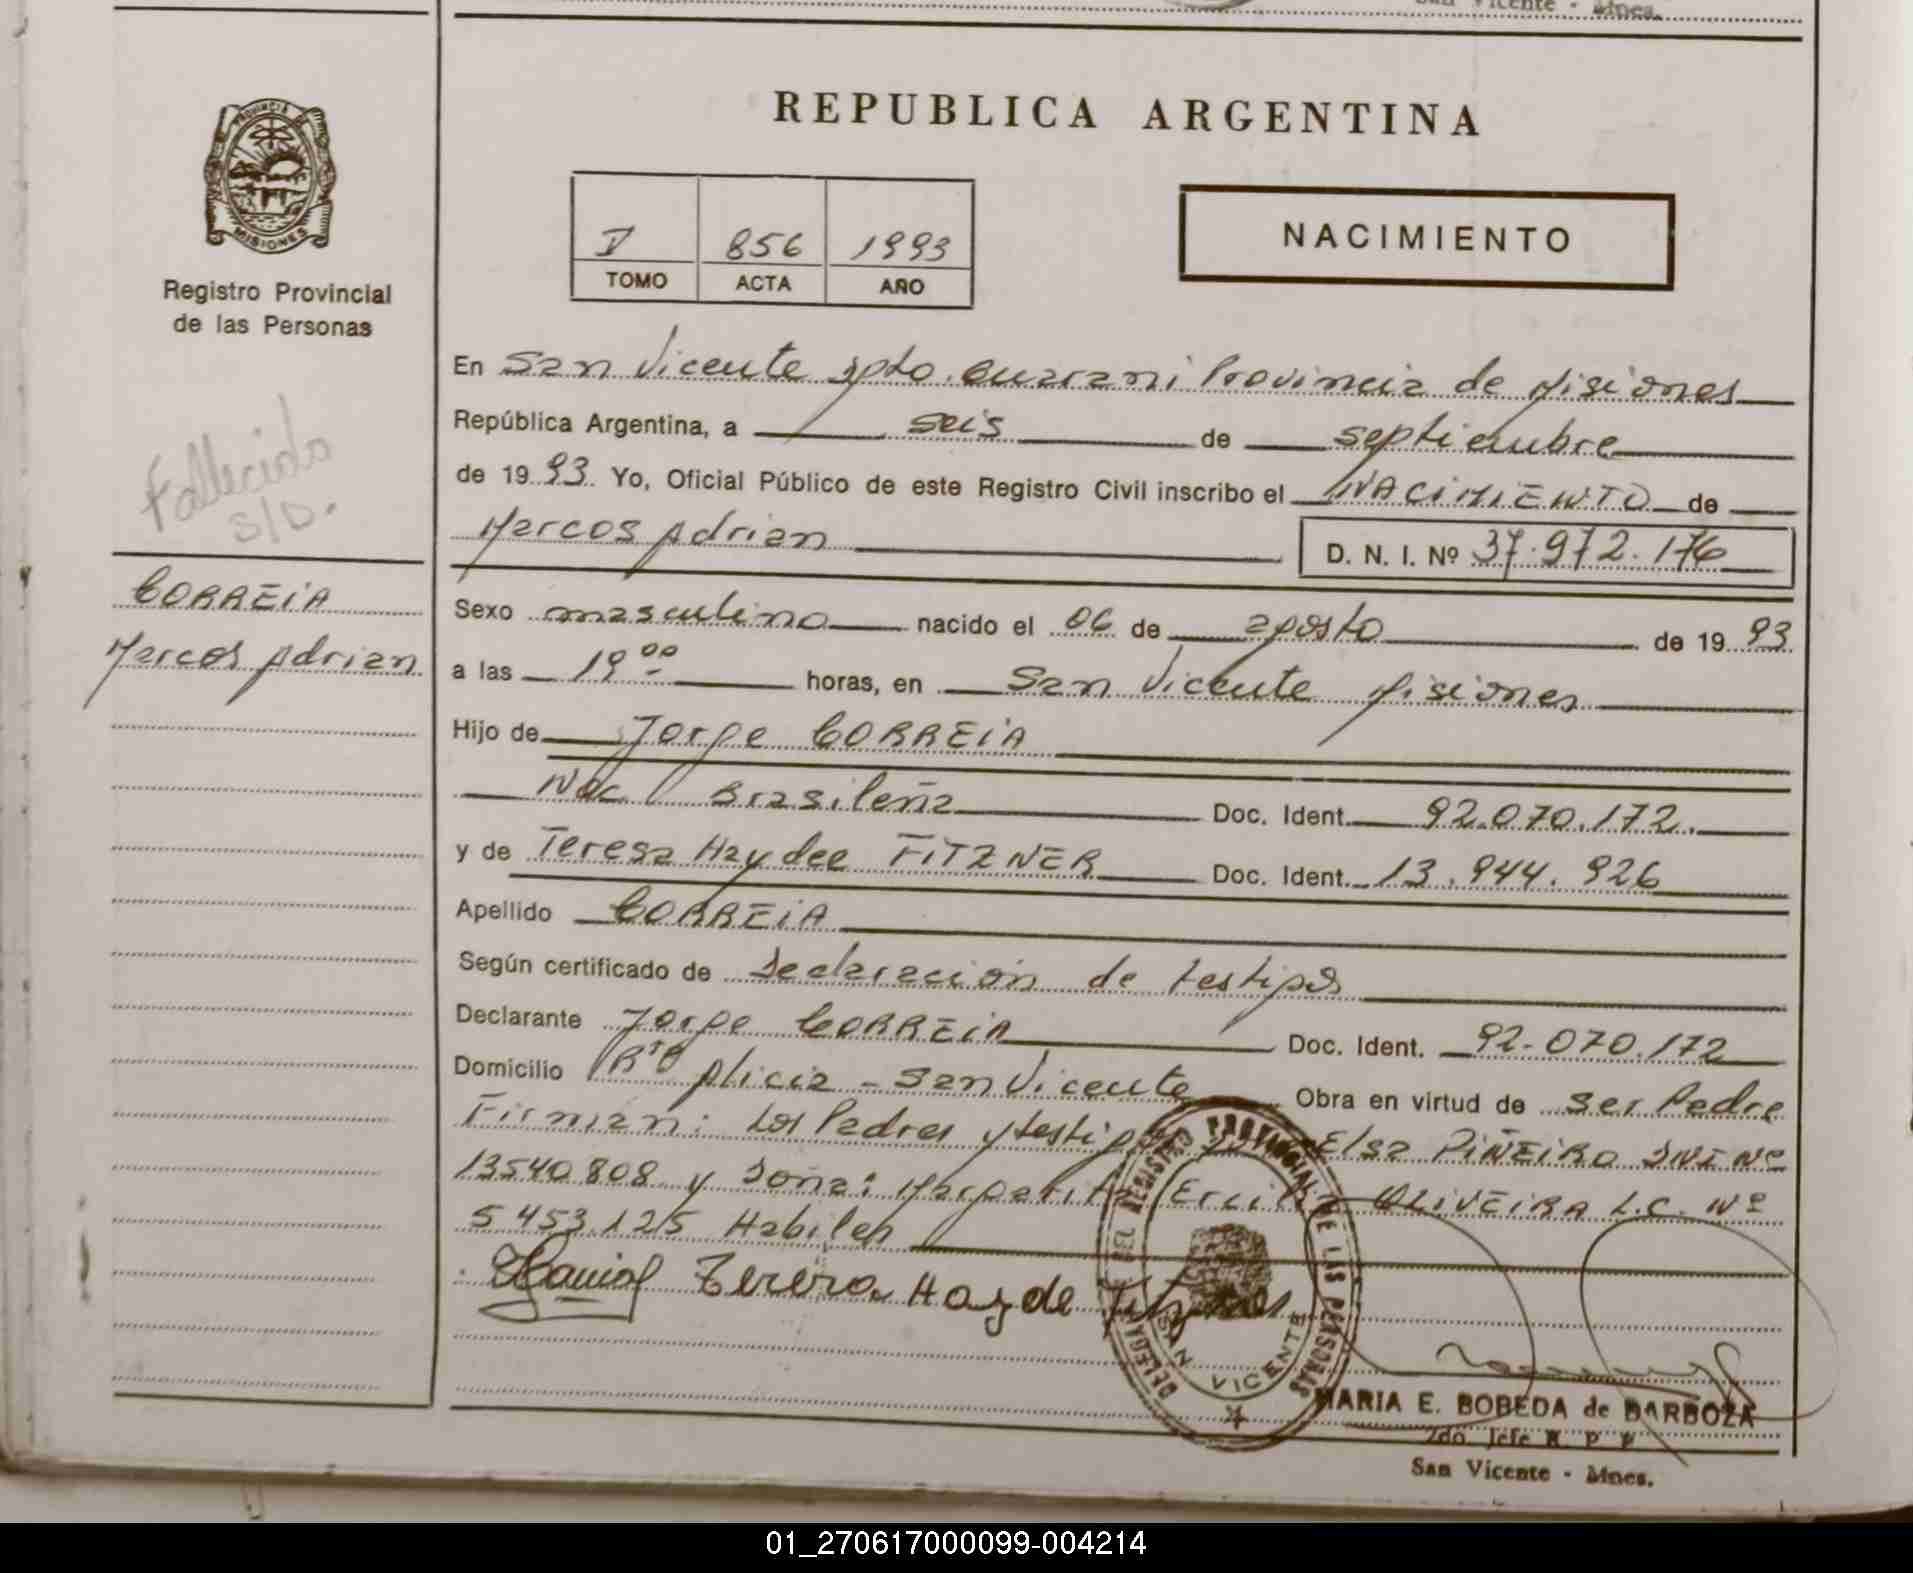 San Vicente - Mnes.
REPUBLICA ARGENTINA
PROVINCIA
MISIONES
Registro Provincial
de las Personas
V 856 1993
TOMO ACTA AÑO
NACIMIENTO
Fallecido
S/D.
CORREIA
Marcos Adrian
En San Vicente Dpto. Guarani Provincia de Misiones
República Argentina, a seis de septiembre
de 1993. Yo, Oficial Público de este Registro Civil inscribo el NACIMIENTO de
Marcos Adrian D. N. I. Nº 37.972.176
Sexo masculino nacido el 06 de agosto de 1993
a las 19 00 horas, en San Vicente Misiones
Hijo de Jorge CORREIA
Nac Brasileña Doc. Ident. 92.070.172.
y de Teresa Haydee FiTZNER Doc. Ident. 13.944.926
Apellido CORREIA
Según certificado de declaración de testigos
Declarante Jorge CORREIA Doc. Ident. 92.070.172
Domicilio Bº Alicia - San Vicente Obra en virtud de ser Padre
Firman: Los Padres y testigos Elsa PIÑEIRO DNI Nº
13540808 y Doña: Margarita OLIVEIRA L.C. Nº
5453.125 Habiles
Teresa Hayde Fitzner
DELEGA DEL REGISTRO PROVINCIAL DE LAS PERSONAS
SAN VICENTE
MARIA E. BOBEDA de BARBOZA
2do. Jefe R. P. P.
San Vicente - Mnes.
01_270617000099-004214